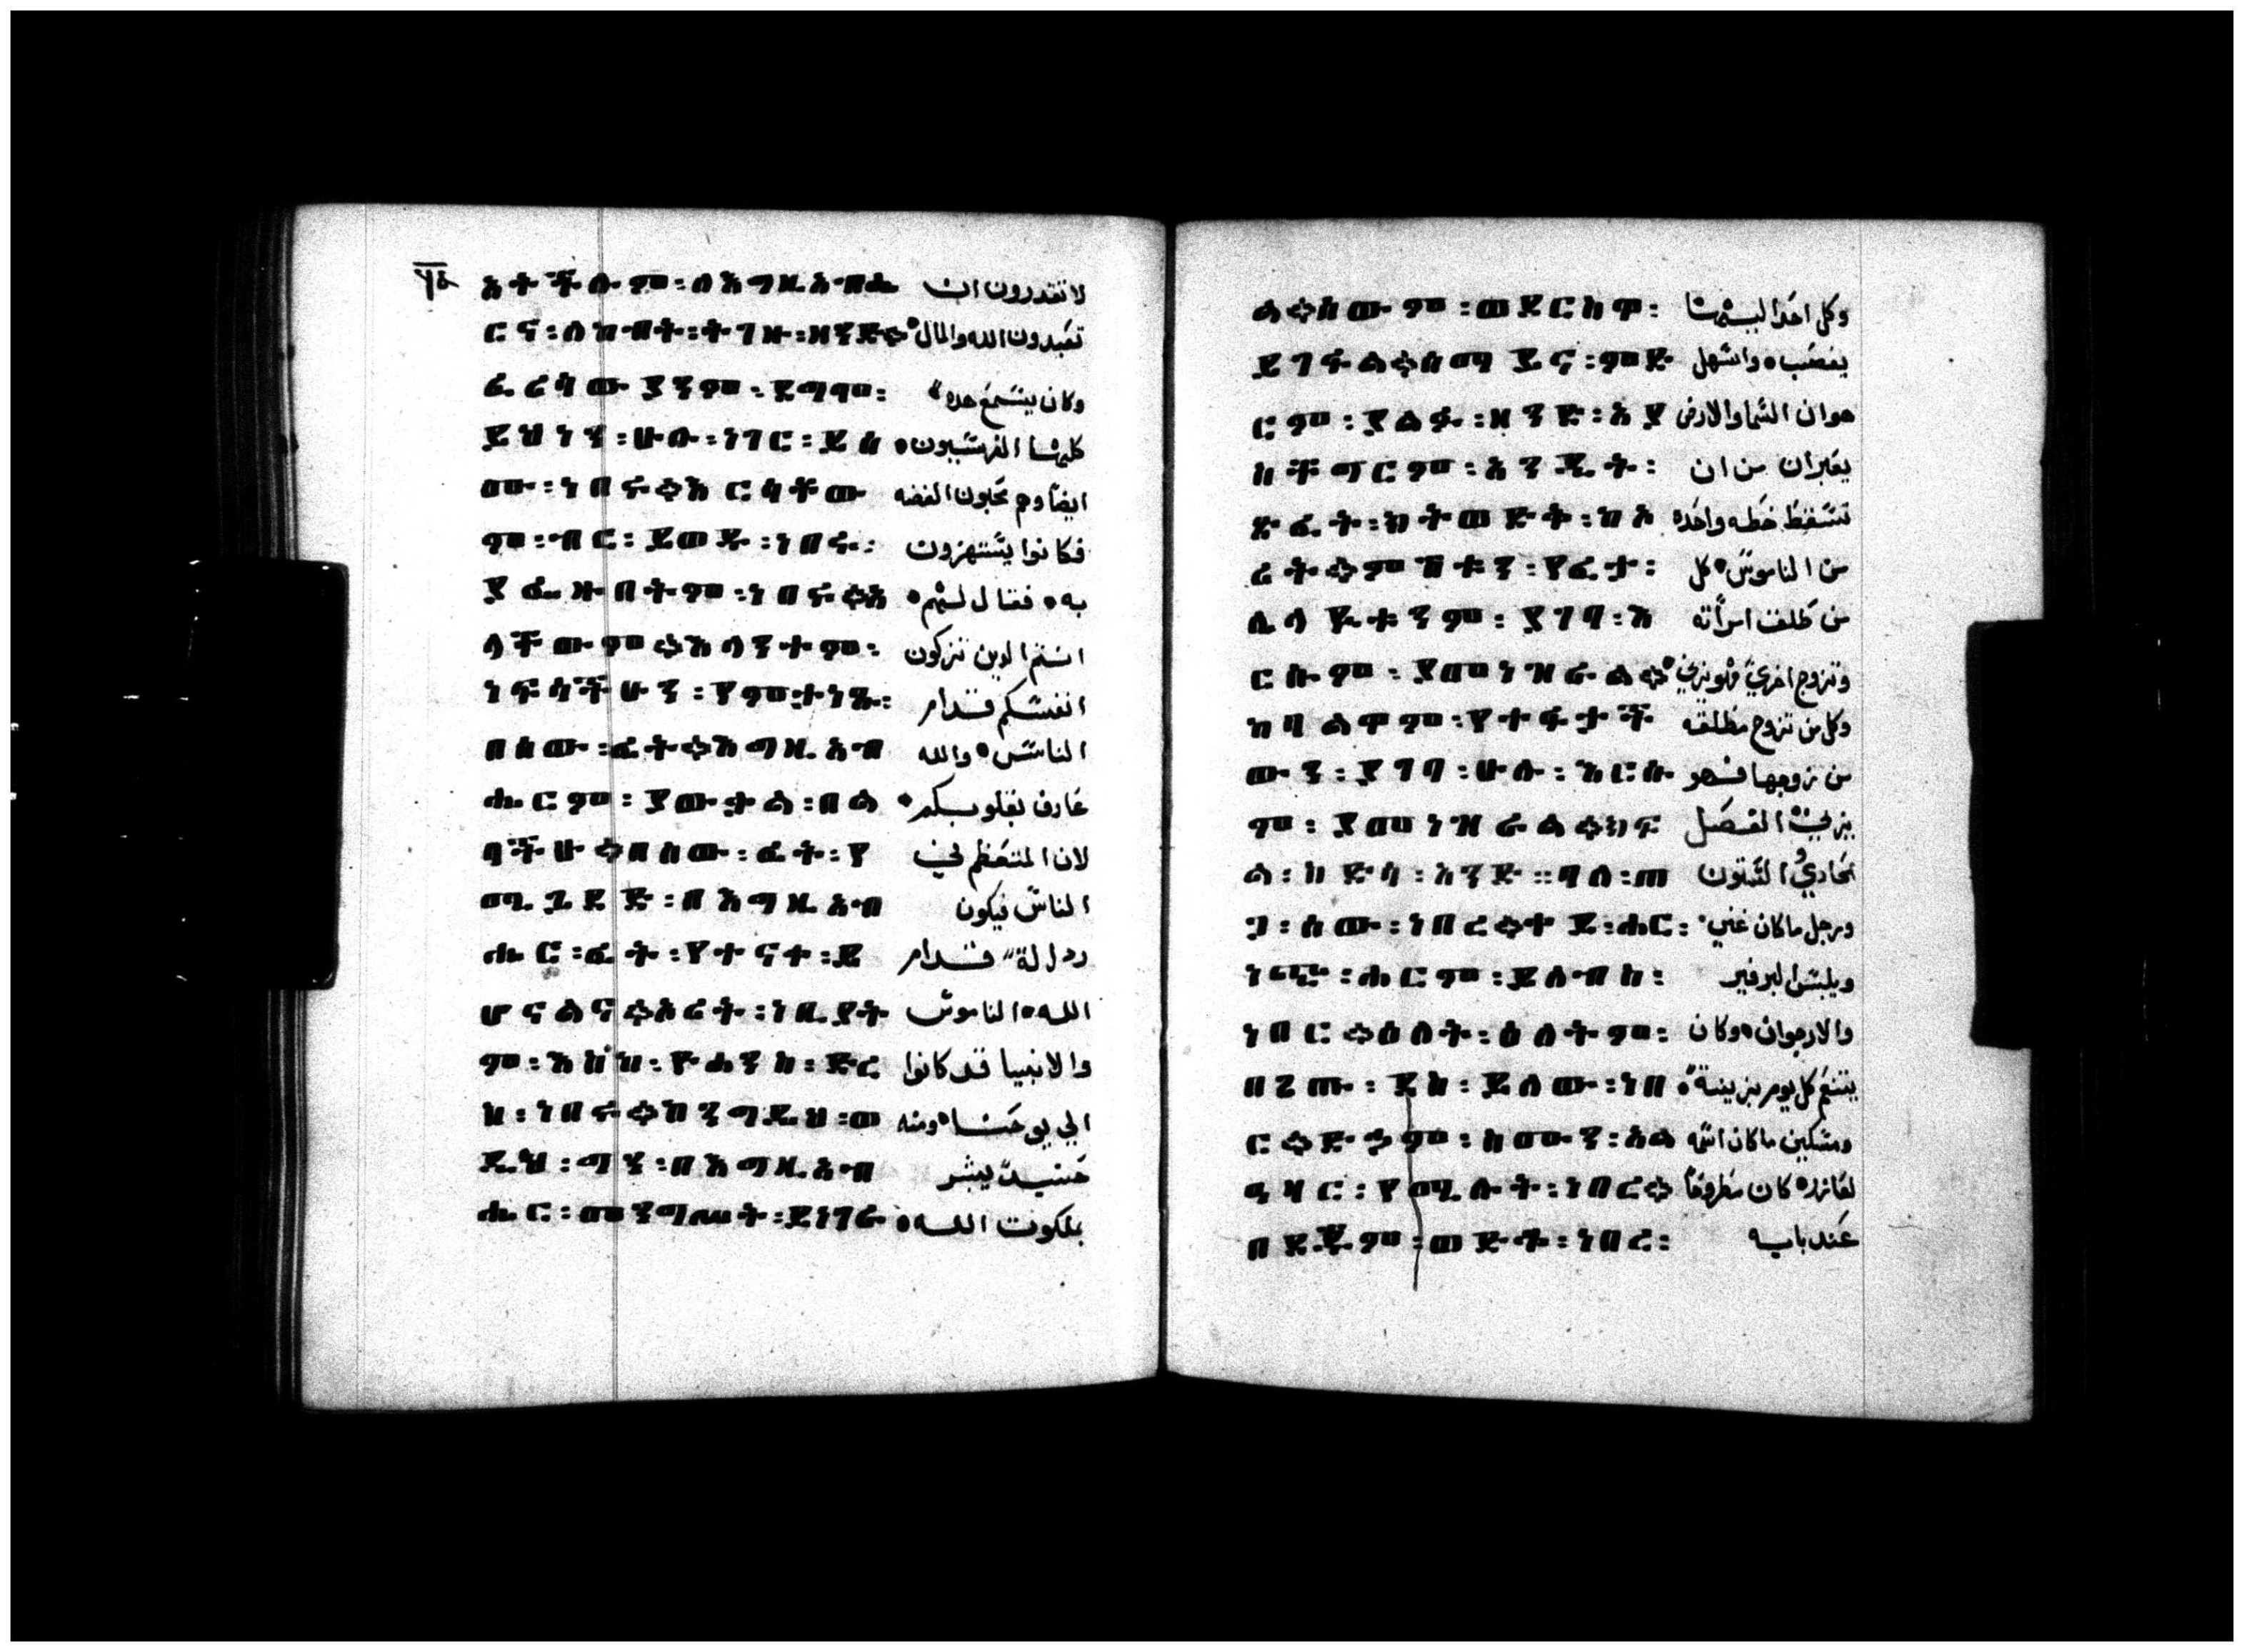 ٩٤
እትችሉም፡ለእግዚአብሔ لا تقدرون ان
ርና፡ለከብት፡ትገዙ፡ዘንድ። تعبدون الله والمال
ፈሪሳውያንም፡ وكان يسمع هده
ይህንን፡ሁሉ፡ነገር፡ይሰ كلها الفريسيون
ሙ፡ነበሩ።እርሳቸው ايضا وهم محبون الفضه
ም፡ብር፡ይወዱ፡ነበሩ፡ فكانوا يستهزون
ያፌዙበትም፡ነበሩ።እ به فقال لهم
ላቸውም።እላንትም፡ انتم الدين تزكون
ነፍሳችሁን፡የምታነጹ፡ انفسكم قدام
በሰው፡ፊት።እግዚአብ الناس والله
ሔርም፡ያውቃል፡በል عارف بقلوبكم
ባችሁ።በሰው፡ፊት፡የ لان المتعظم في
ሚጊደድ፡በእግዚአብ الناس فيكون
ሔር፡ፊት፡የተናተ፡ይ قدام
ሆናልና።ኦሪት፡ነቢያት الله الناموس
ም፡እከከ፡ዮሐንስ፡ድረ والانبيا قد كانوا
ስ፡ነበሩ።ከንግዲህ፡ወ الي يوحنا ومنه
ዲህ፡ግን፡በእግዚአብ يبشر
ሔር፡መንግሥት፡ይነገራ بملكوت الله
ል።ሰውም፡ وكل احد اليها
ይገፋል።ሰማይና፡ምድ يغصب واسهل
ርም፡ያልፉ፡ዘንድ፡እያ هو ان السما والارض
ስቸግርም፡አንዲት፡ يعبران من ان
ጽፈት፡ከትወድት፡ከኦ تسقط خطه واحده
ሪት።ምሽቱን፡የፈታ፡ من الناموس كل
ሌላይቱንም፡ያገባ፡እ من طلق امراته
ርሱም፡ያመነዝራል። وتزوج اخري فهو يزني
ከባልዋም፡የተፋታች وكل من تزوج مطلقه
ውን፡ያገባ፡ሁሉ፡እርሱ من زوجها فهو
ም፡ያመነዝራል።ክፍ يزني الفصل
ል፡ከድሳ፡አንድ።ባለ፡ጠ الستون
ጋ፡ሰው፡ነበረ። ሐር፡ ورجل ما كان غني
ነጭ፡ሐርም፡ይለብስ፡ ويلبس البرفير
ነበር።ዕለት፡ዕለትም፡ والارجوان وكان
በጌጡ፡ደስ፡ይለው፡ነበ يتنعم كل يوم بزينة
ር።ድኃም፡ስሙን፡አል ومسكين ما كان اسمه
ዓዛር፡የሚሉት፡ነበረ። لعازر كان مطروحا
በደጁም፡ወድቆ፡ነበረ፡ عند بابه